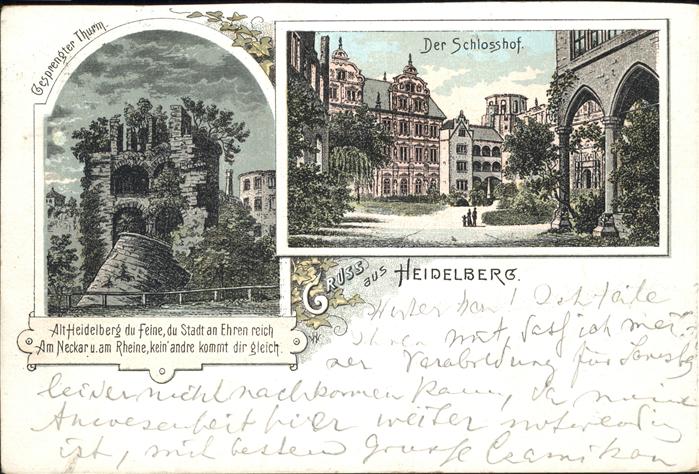 Gesprengter Thurm.
Der Schlosshof.
Gruss aus Heidelberg.
Alt Heidelberg du Feine, du Stadt an Ehren reich
Am Neckar u. am Rheine, kein' andre kommt dir gleich.
Werter Herr! Ich teile
Ihnen mit, daß ich mei-
ner Verabredung für
leider nicht nachkommen kann, da meine
Anwesenheit hier weiter notwendig
ist, mit bestem Grusse